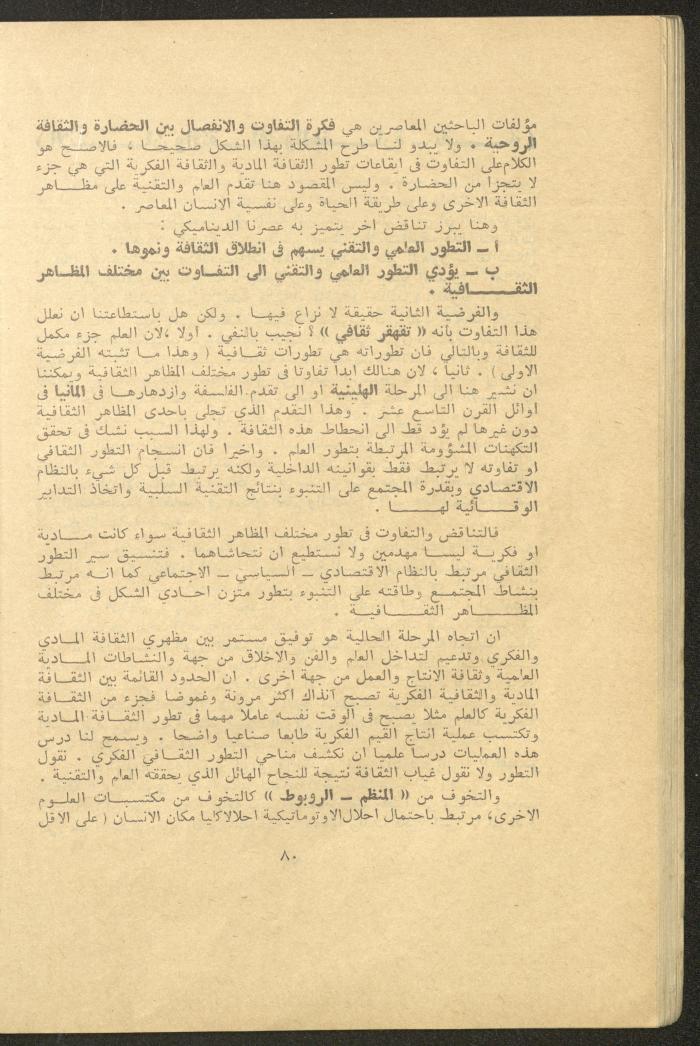 مؤلفات الباحثين المعاصرين هي فكرة التفاوت والانفصال بين الحضارة والثقافة
الروحية . ولا يبدو لنا طرح المشكلة بهذا الشكل صحيحا ، فالاصح هو
الكلام على التفاوت في ايقاعات تطور الثقافة المادية والثقافة الفكرية التي هي جزء
لا يتجزأ من الحضارة . وليس المقصود هنا تقدم العلم والتقنية على مظاهر
الثقافة الاخرى وعلى طريقة الحياة وعلى نفسية الانسان المعاصر .
وهنا يبرز تناقض اخر يتميز به عصرنا الديناميكي :
أ ــ التطور العلمي والتقني يسهم في انطلاق الثقافة ونموها .
ب ــ يؤدي التطور العلمي والتقني الى التفاوت بين مختلف المظاهر
الثقافية .
والفرضية الثانية حقيقة لا نزاع فيها . ولكن هل باستطاعتنا ان نعلل
هذا التفاوت بأنه « تقهقر ثقافي » ؟ نجيب بالنفي . اولا ،لان العلم جزء مكمل
للثقافة وبالتالي فان تطوراته هي تطورات ثقافية ( وهذا ما تثبته الفرضية
الاولى ) . ثانيا ، لان هنالك ابدا تفاوتا في تطور مختلف المظاهر الثقافية ويمكننا
ان نشير هنا الى المرحلة الهلينية او الى تقدم الفلسفة وازدهارها في المانيا في
اوائل القرن التاسع عشر . وهذا التقدم الذي تجلى باحدى المظاهر الثقافية
دون غيرها لم يؤد قط الى انحطاط هذه الثقافة . ولهذا السبب نشك في تحقق
التكهنات المشؤومة المرتبطة بتطور العلم . واخيرا فان انسجام التطور الثقافي
او تفاوته لا يرتبط فقط بقوانينه الداخلية ولكنه يرتبط قبل كل شيء بالنظام
الاقتصادي وبقدرة المجتمع على التنبوء بنتائج التقنية السلبية واتخاذ التدابير
الوقائية لها .
فالتناقض والتفاوت في تطور مختلف المظاهر الثقافية سواء كانت مادية
او فكرية ليسا مهدمين ولا نستطيع ان نتحاشاهما . فتنسيق سير التطور
الثقافي مرتبط بالنظام الاقتصادي ــ السياسي ــ الاجتماعي كما انه مرتبط
بنشاط المجتمع وطاقته على التنبوء بتطور متزن احادي الشكل في مختلف
المظاهر الثقافية .
ان اتجاه المرحلة الحالية هو توفيق مستمر بين مظهري الثقافة المادي
والفكري وتدعيم لتداخل العلم والفن والاخلاق من جهة والنشاطات المادية
العلمية وثقافة الانتاج والعمل من جهة اخرى . ان الحدود القائمة بين الثقافة
المادية والثقافية الفكرية تصبح آنذاك اكثر مرونة وغموضا فجزء من الثقافة
الفكرية كالعلم مثلا يصبح في الوقت نفسه عاملا مهما في تطور الثقافة المادية
وتكتسب عملية انتاج القيم الفكرية طابعا صناعيا واضحا . ويسمح لنا درس
هذه العمليات درسا علميا ان نكشف مناحي التطور الثقافي الفكري . نقول
التطور ولا نقول غياب الثقافة نتيجة للنجاح الهائل الذي يحققه العلم والتقنية .
والتخوف من « المنظم ــ الروبوط » كالتخوف من مكتسبات العلوم
الاخرى، مرتبط باحتمال احلال الاوتوماتيكية احلالا كليا مكان الانسان ( على الاقل
٨٠